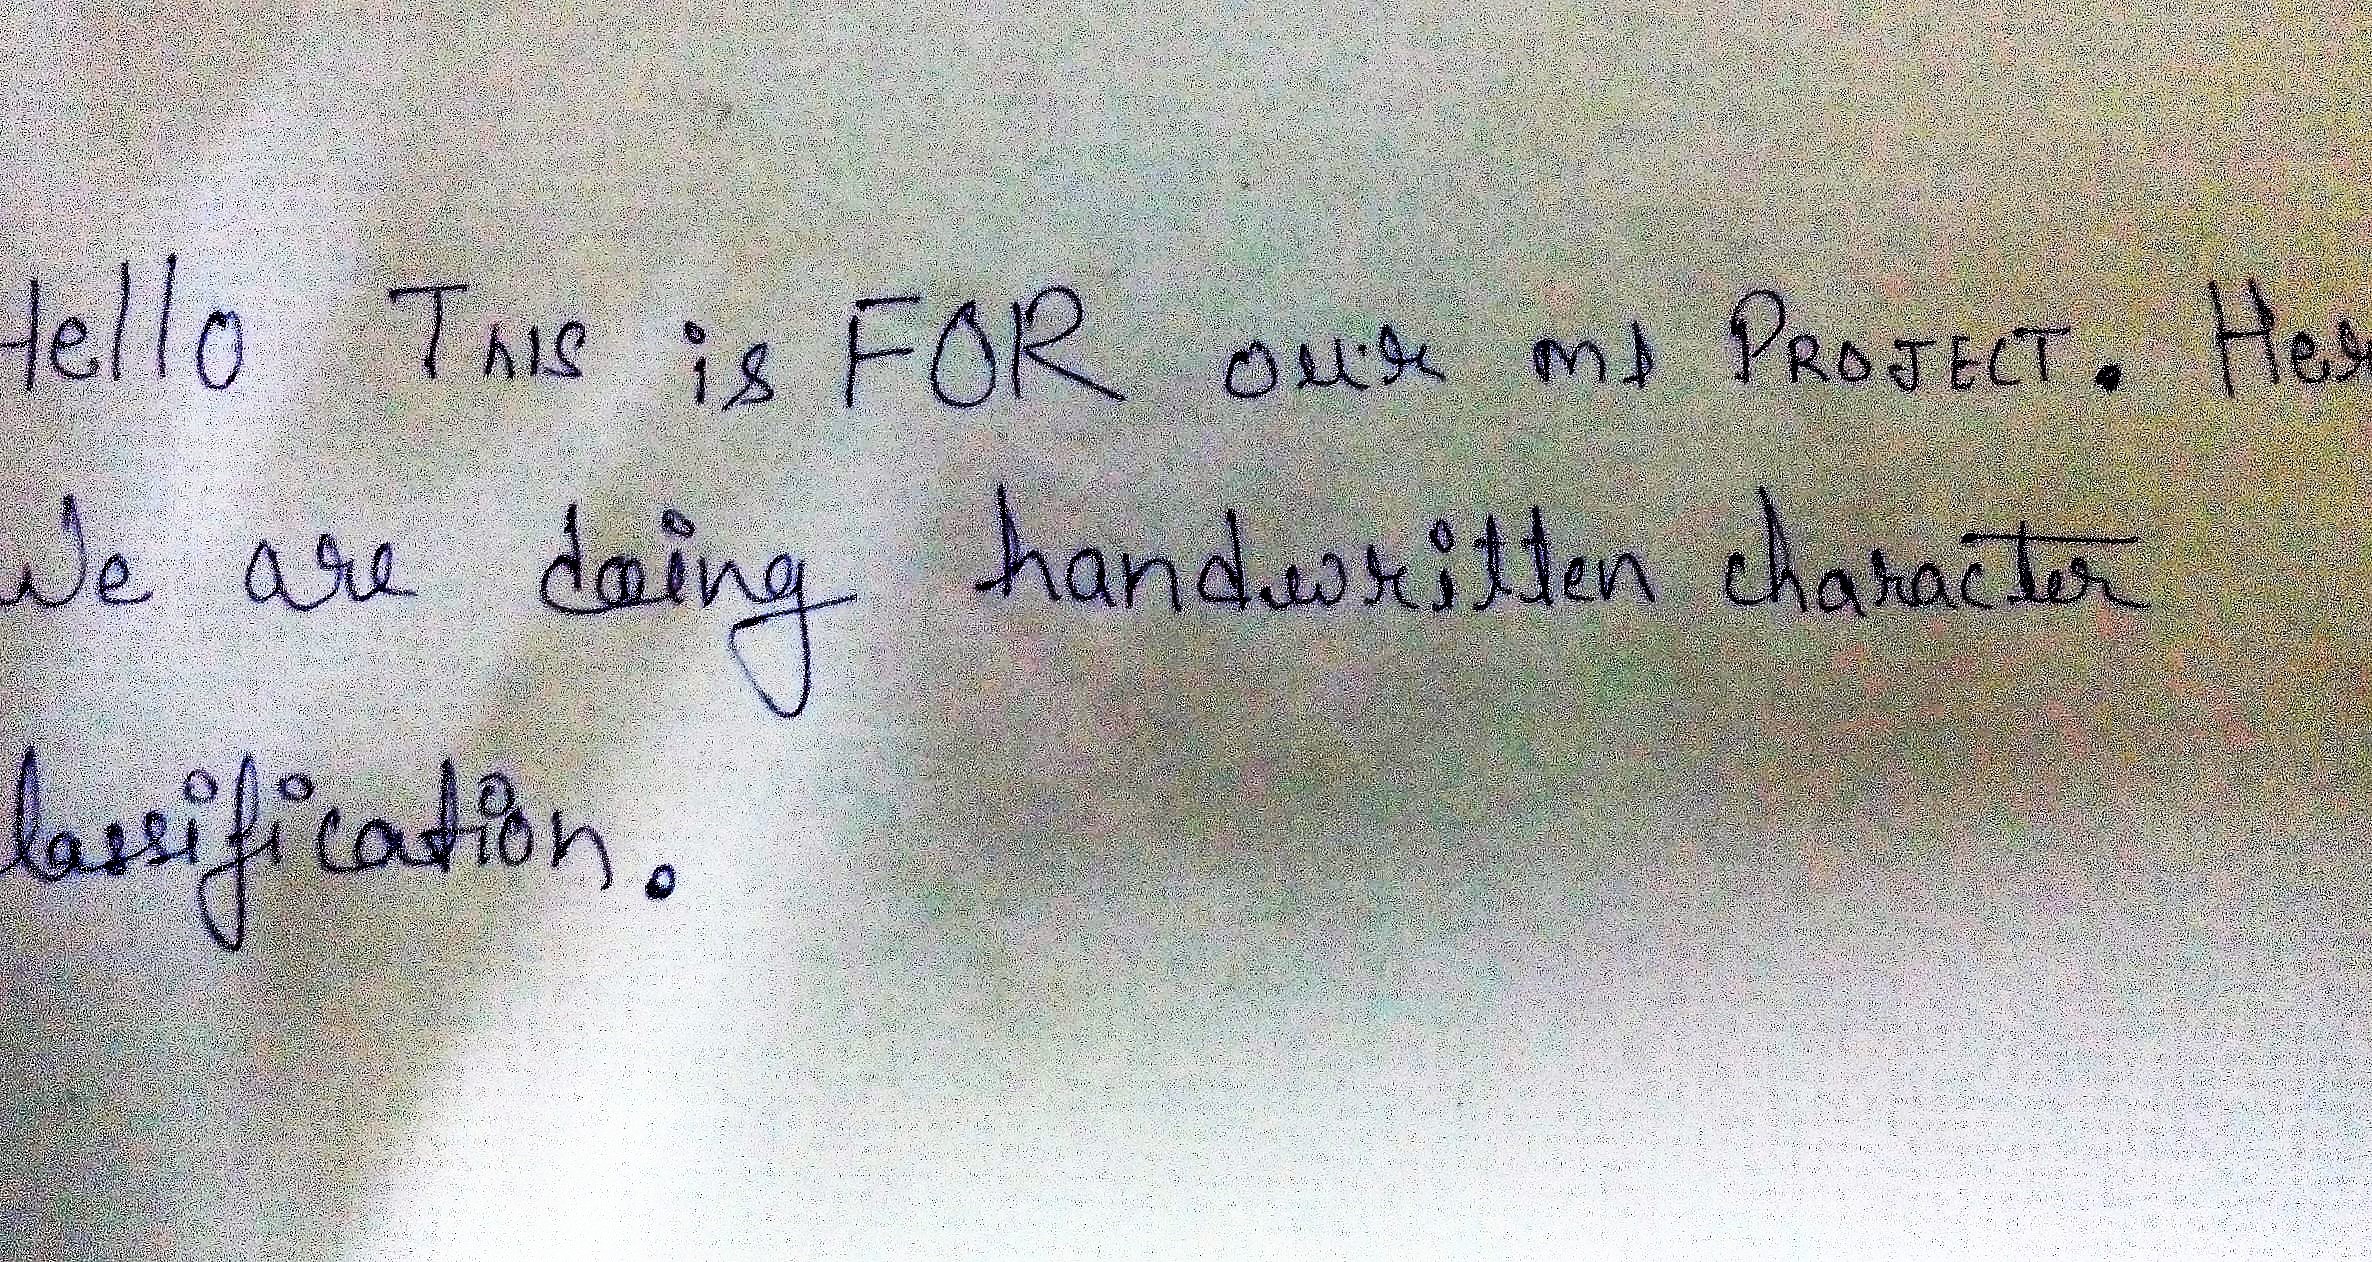 Hello THIS is FOR our ms PROJECT. Her
We are doing handwritten character
lassification.